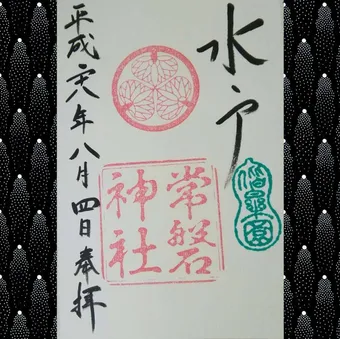 水戸
偕樂園
常磐
神社
平成二八年八月四日奉拝